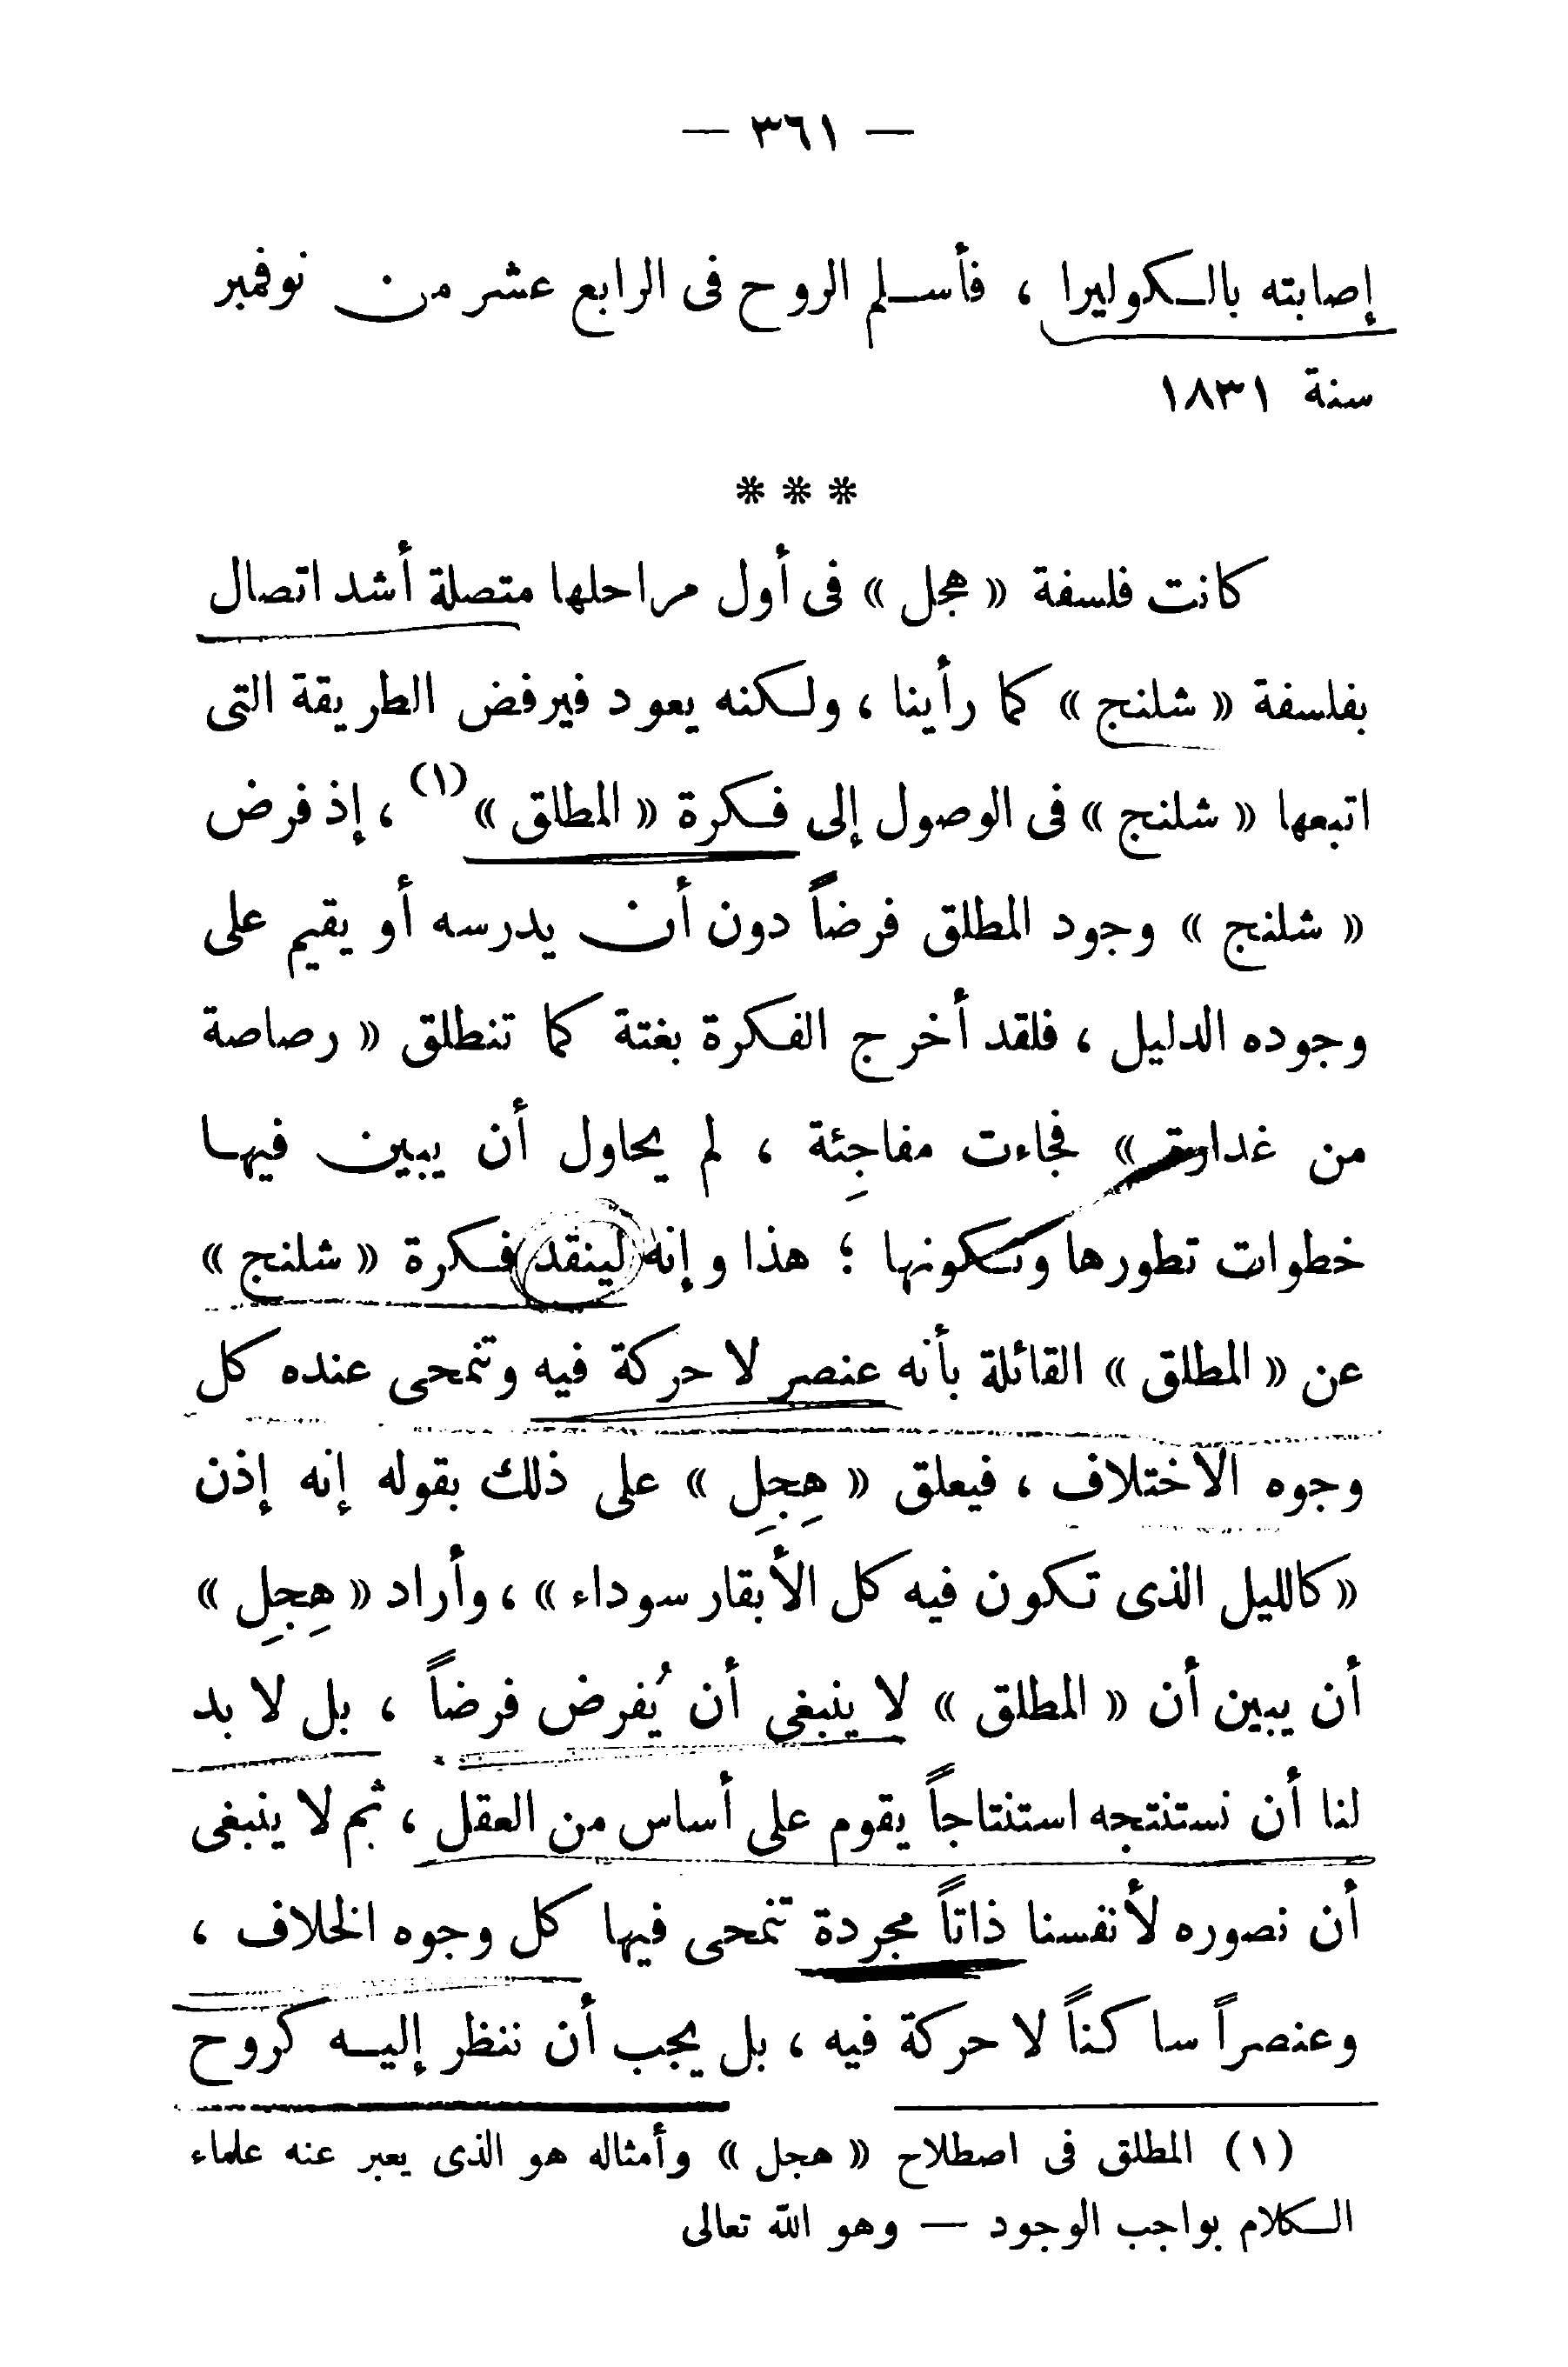 — ٣٦١ —
إصابته بالكوليرا ، فأسلم الروح فى الرابع عشر من نوفمبر
سنة ١٨٣١
* * *
كانت فلسفة « هجل » فى أول مراحلها متصلة أشد اتصال
بفلسفة « شلنج » كما رأينا ، ولكنه يعود فيرفض الطريقة التى
اتبعها « شلنج » فى الوصول إلى فكرة « المطلق »(١) ، إذ فرض
« شلنج » وجود المطلق فرضاً دون أن يدرسه أو يقيم على
وجوده الدليل ، فلقد أخرج الفكرة بغتة كما تنطلق « رصاصة
من غدارة » فجاءت مفاجِئة ، لم يحاول أن يبين فيها
خطوات تطورها وتكونها ؛ هذا وإنه لينقد فكرة « شلنج »
عن « المطلق » القائلة بأنه عنصر لا حركة فيه وتنمحى عنده كل
وجوه الاختلاف ، فيعلق « هِجِل » على ذلك بقوله إنه إذن
« كالليل الذى تكون فيه كل الأبقار سوداء » ، وأراد « هِجِل »
أن يبين أن « المطلق » لا ينبغى أن يُفرض فرضاً ، بل لا بد
لنا أن نستنتجه استنتاجاً يقوم على أساس من العقل ، ثم لا ينبغى
أن نصوره لأنفسنا ذاتاً مجردة تنمحى فيها كل وجوه الخلاف ،
وعنصراً ساكناً لا حركة فيه ، بل يجب أن ننظر إليه كروح
(١) المطلق فى اصطلاح « هجل » وأمثاله هو الذى يعبر عنه علماء
الكلام بواجب الوجود — وهو الله تعالى